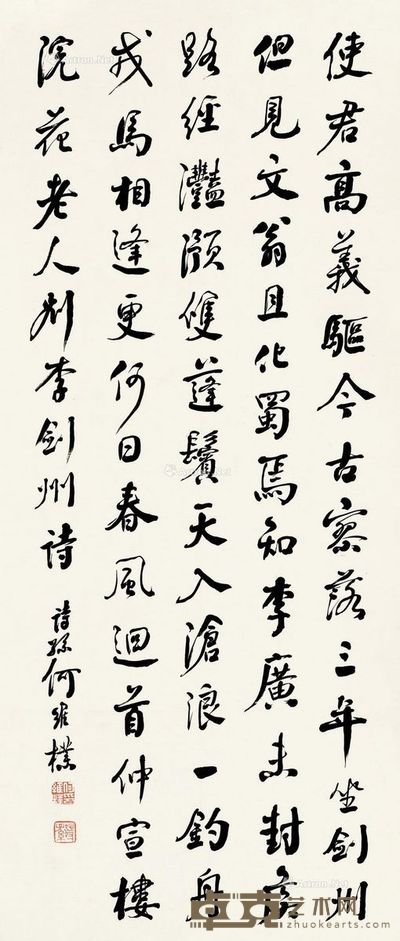 使君高義驅今古寥落三年坐劍州
但見文翁且化蜀焉知李廣未封侯
路經灩澦雙蓬鬢天入滄浪一釣舟
戎馬相逢更何日春風迴首仲宣樓
浣花老人別李劍州詩
詩孫何維樸
艺术网
zhuokearts.com